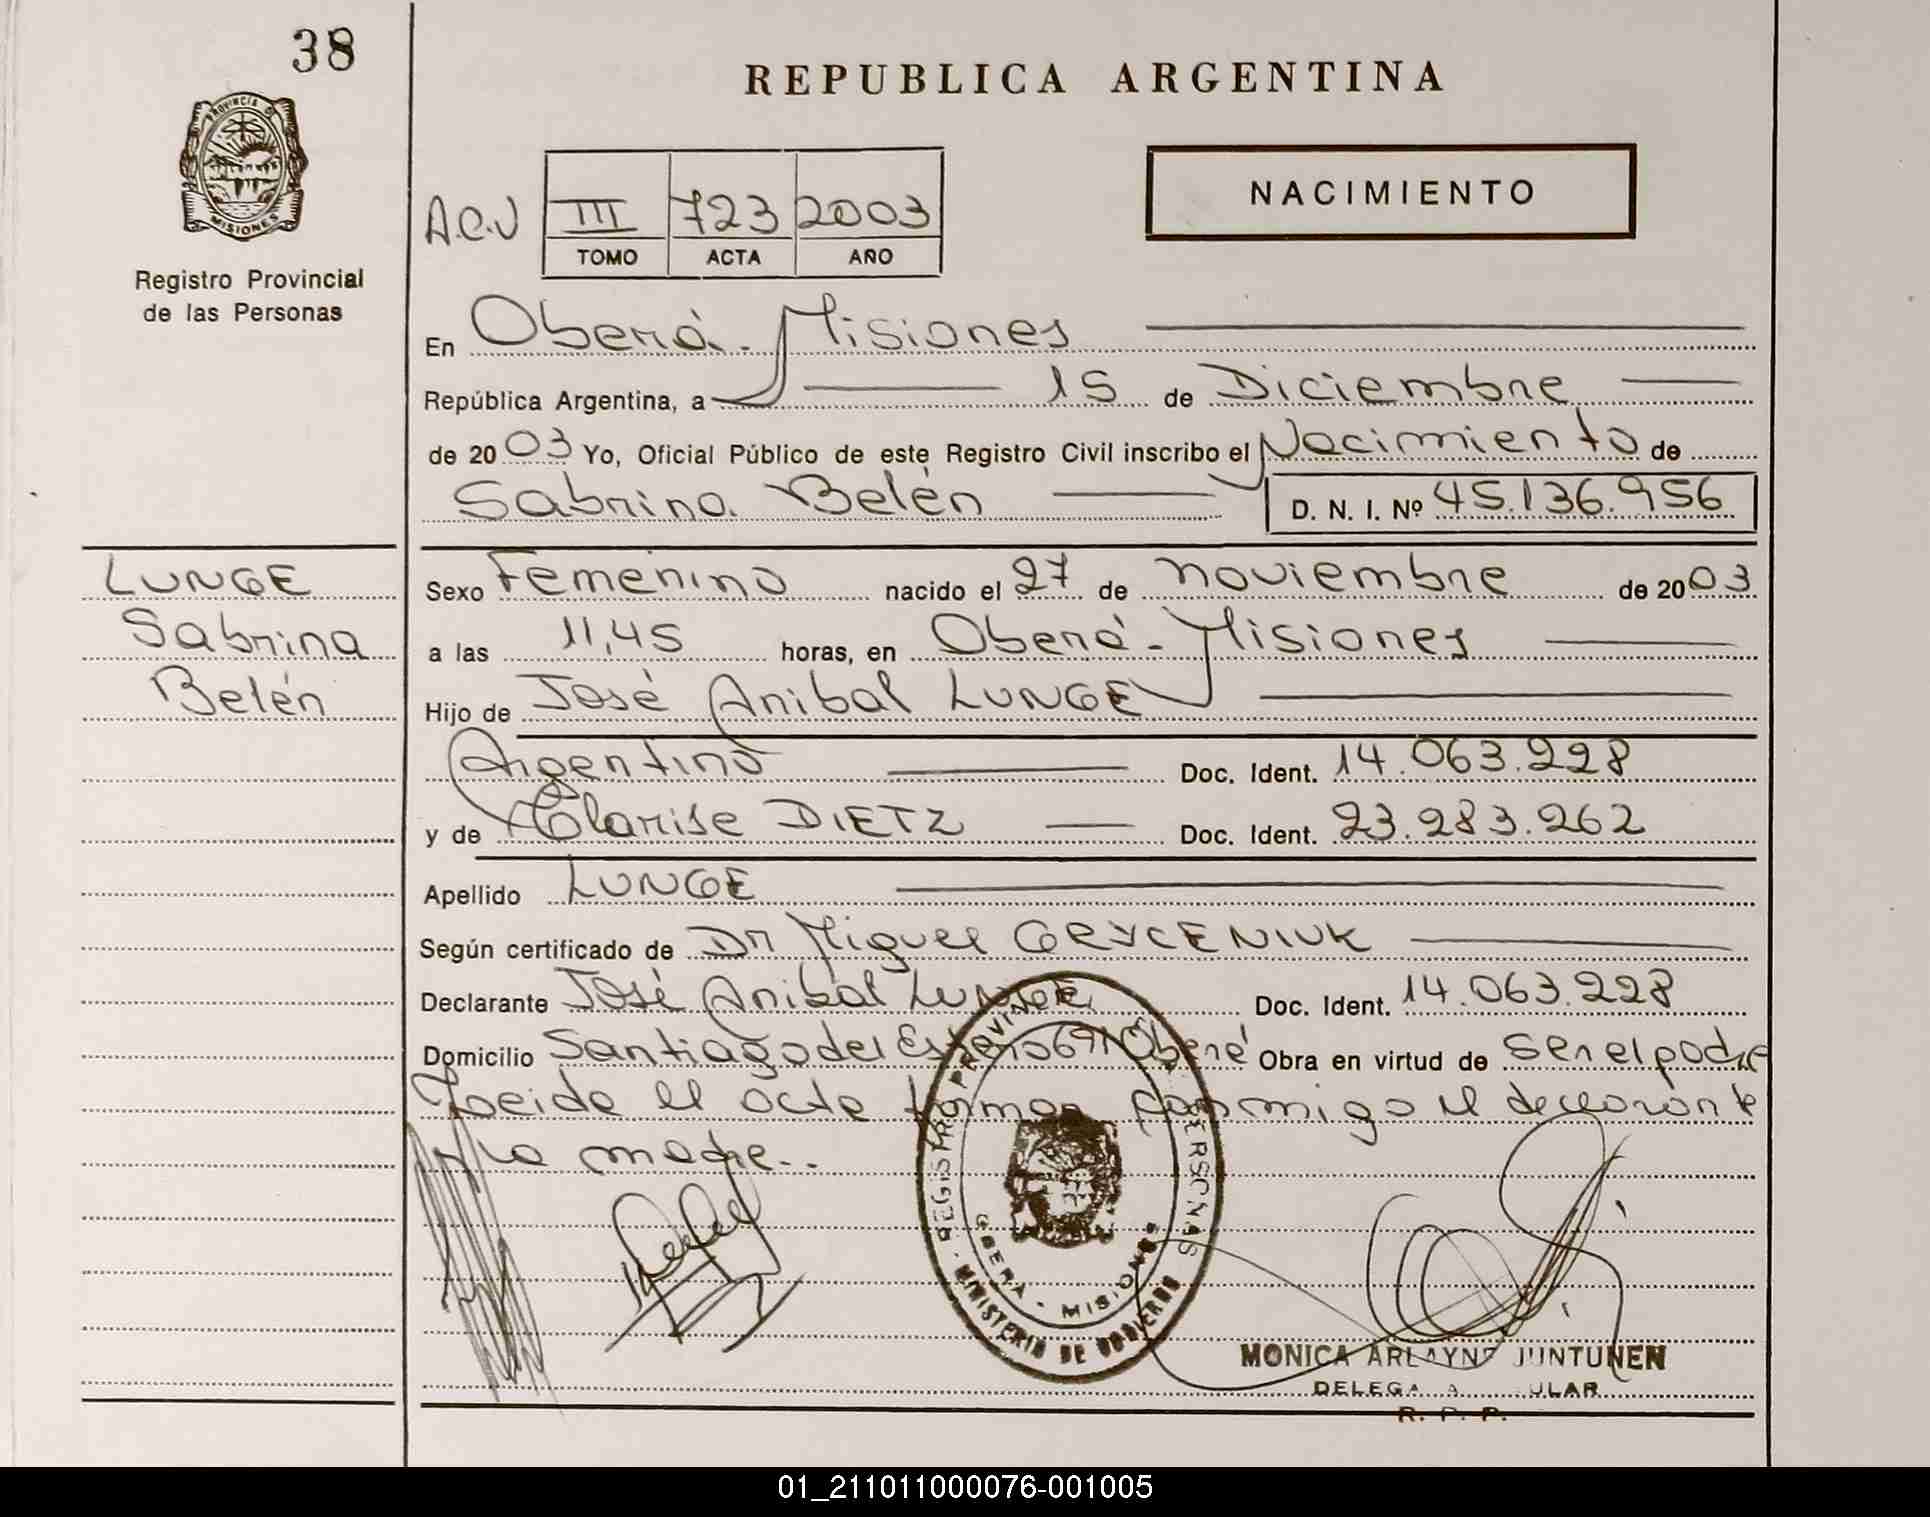 38
PROVINCIA DE
MISIONES
Registro Provincial
de las Personas
REPUBLICA ARGENTINA
NACIMIENTO
A.C.V III 723 2003
TOMO ACTA AÑO
En Oberá - Misiones
República Argentina, a 15 de Diciembre
de 2003 Yo, Oficial Público de este Registro Civil inscribo el Nacimiento de
Sabrina Belén D. N. I. Nº 45.136.956
LUNGE
Sabrina
Belén
Sexo Femenino nacido el 27 de noviembre de 2003
a las 11,45 horas, en Oberá - Misiones
Hijo de José Anibal LUNGE
Argentino Doc. Ident. 14.063.228
y de Clarise DIETZ Doc. Ident. 23.283.262
Apellido LUNGE
Según certificado de Dr Miguel GRYCENIUK
Declarante José Anibal LUNGE Doc. Ident. 14.063.228
Domicilio Santiago del Estero 691 Oberá Obra en virtud de ser el padre
Leida el acta firman conmigo el declarante
y la madre..
REGISTRO PROVINCIAL PERSONAS
OBERA - MISIONES
MINISTERIO DE GOBIERNO
MONICA ARLAYNE JUNTUNEN
R. P. P.
01_211011000076-001005